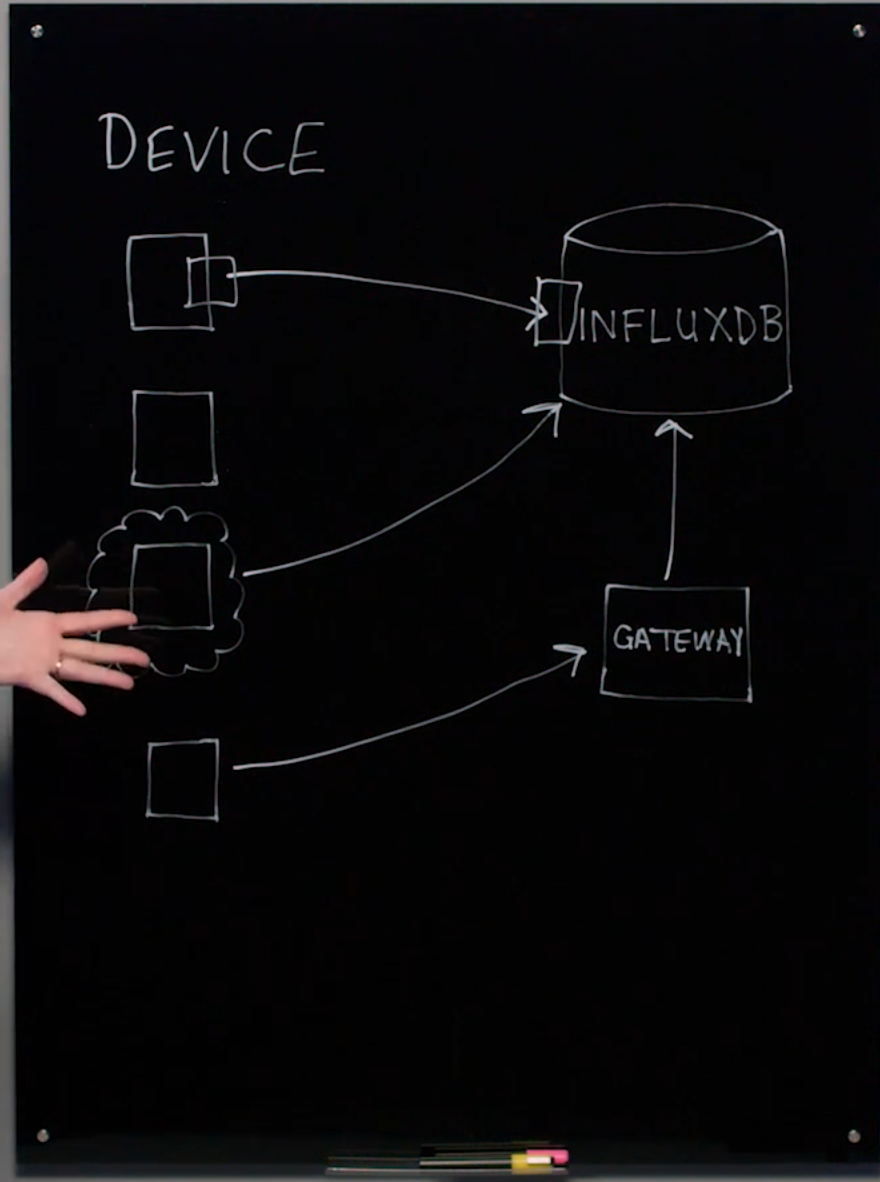 DEVICE
INFLUXDB
GATEWAY